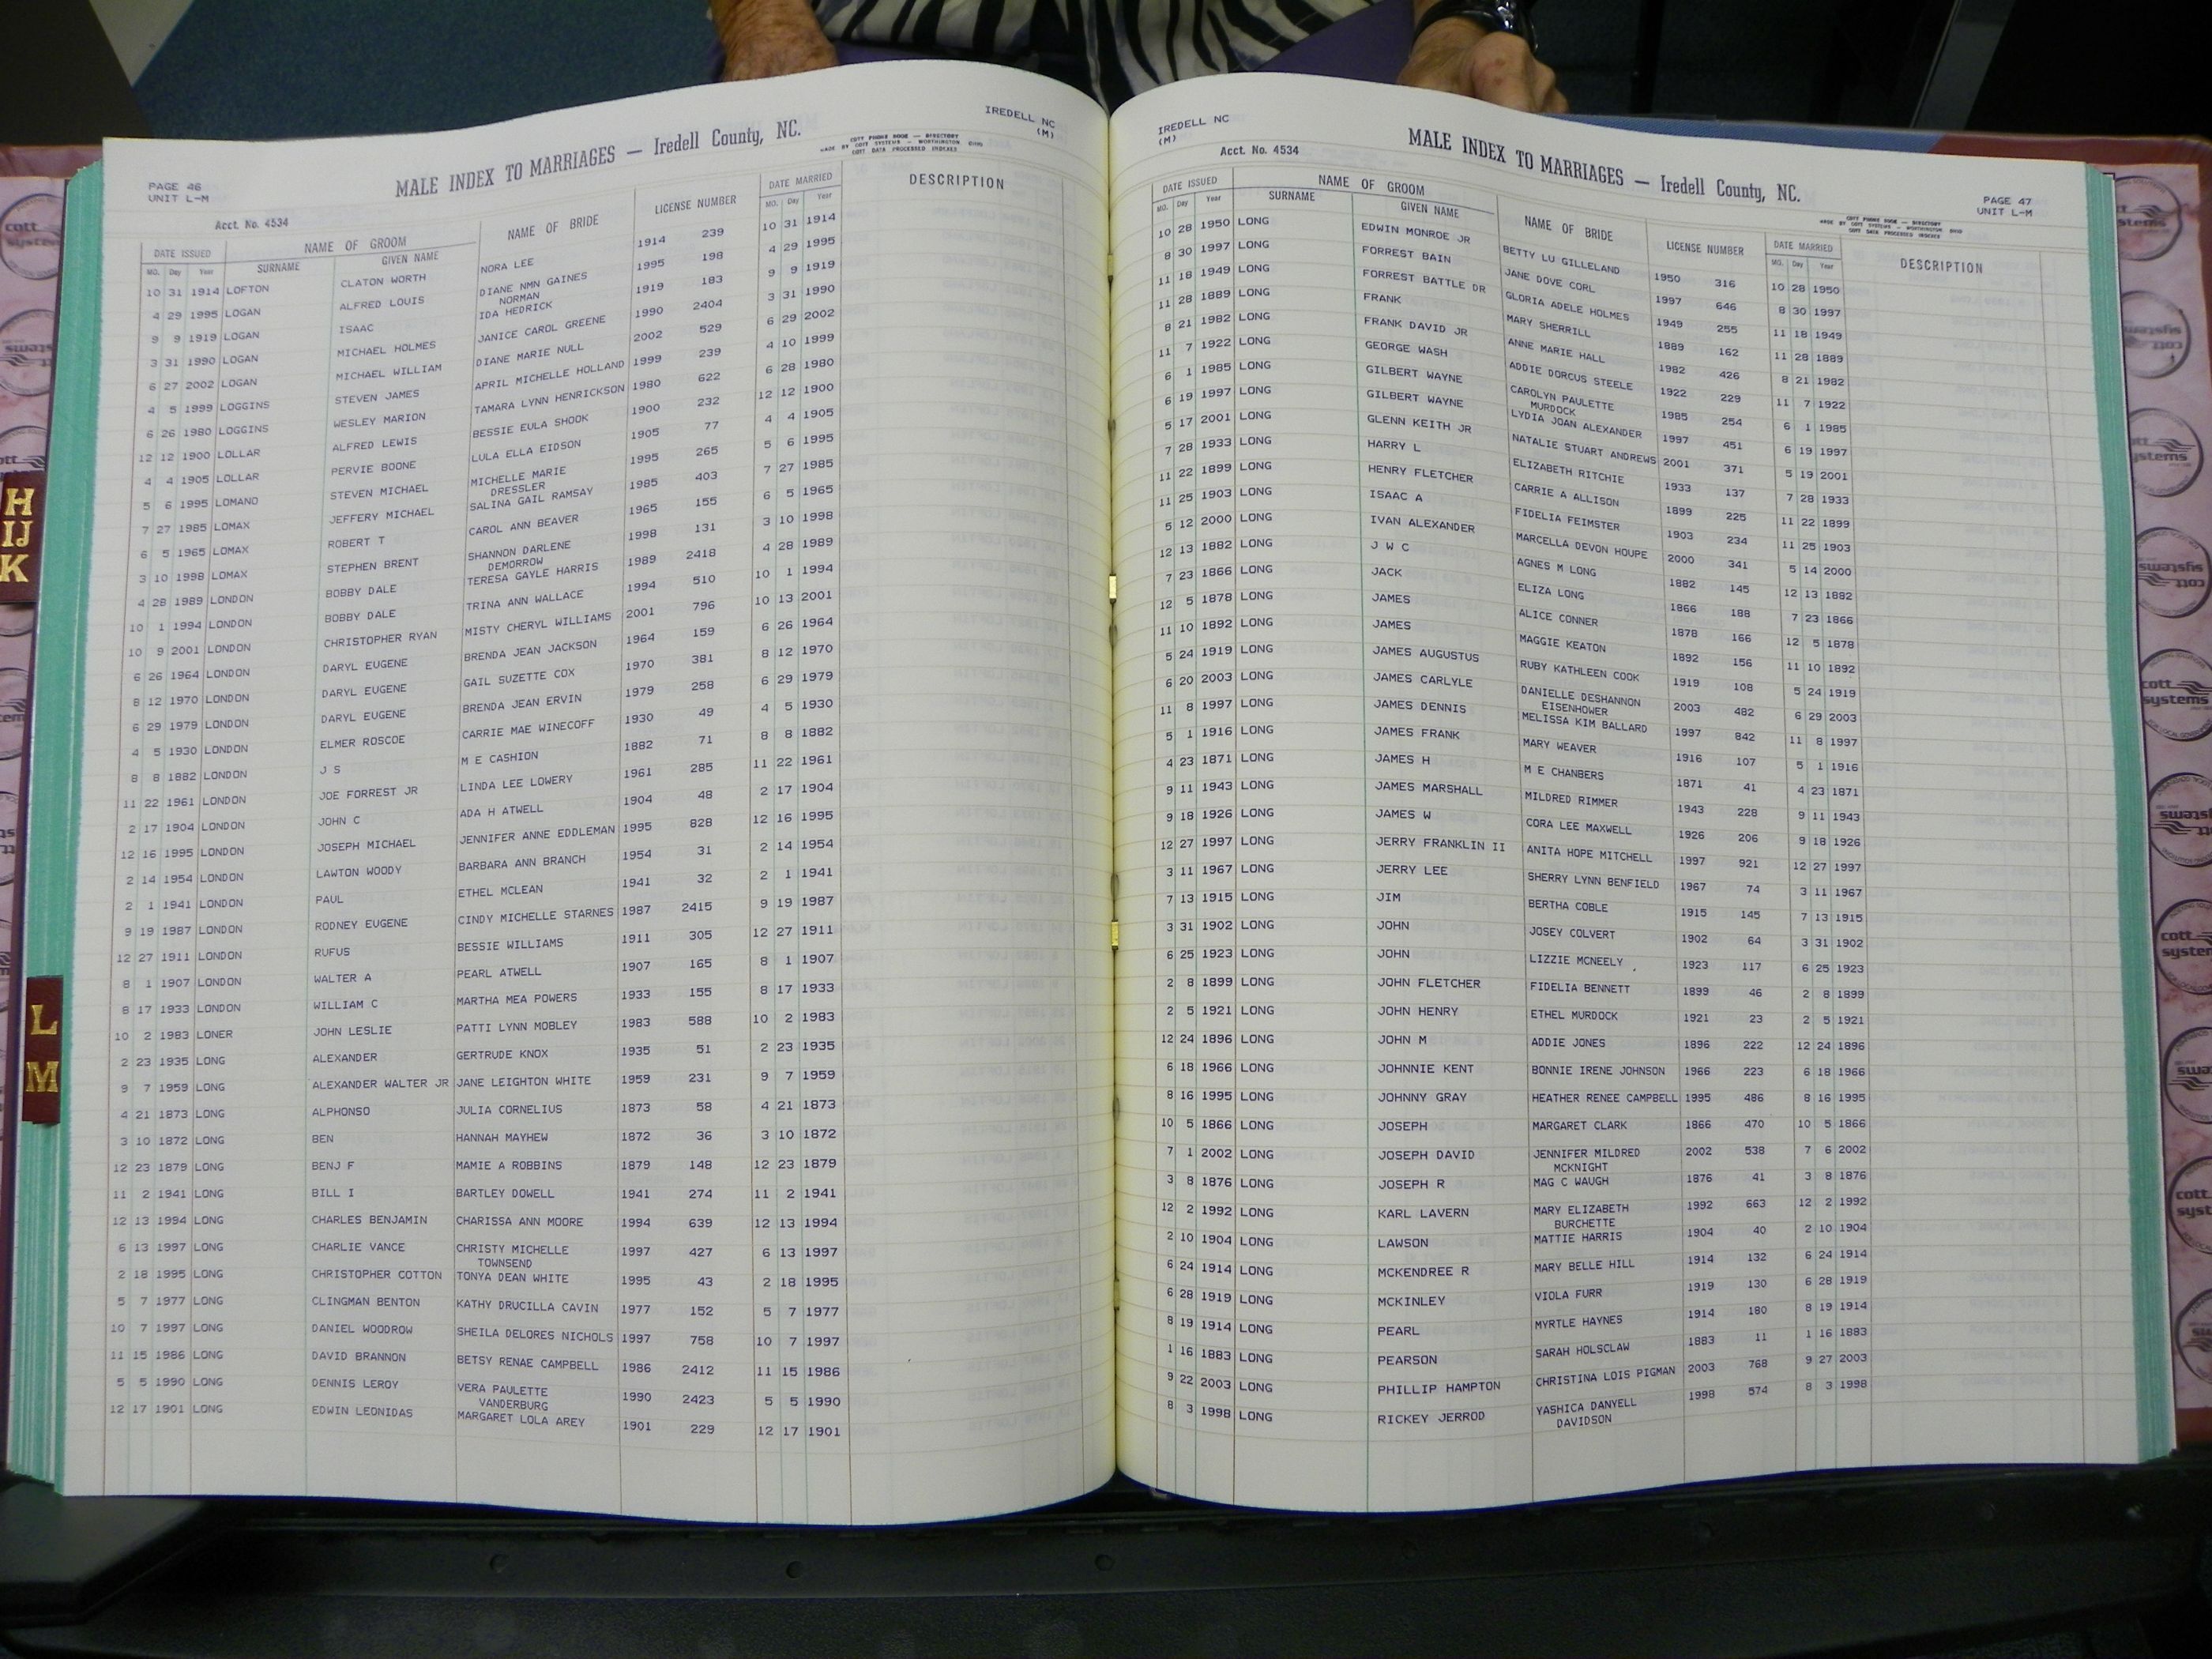 PAGE 46
UNIT L-M
MALE INDEX TO MARRIAGES — Iredell County, NC.
IREDELL NC
(M)
COTT PHONE BOOK — DIRECTORY
MADE BY COTT SYSTEMS — WORTHINGTON OHIO
COTT DATA PROCESSED INDEXES
Acct. No. 4534
DATE ISSUED NAME OF GROOM NAME OF BRIDE LICENSE NUMBER DATE MARRIED DESCRIPTION
MO. Day Year SURNAME GIVEN NAME MO. Day Year
10 31 1914 LOFTON CLATON WORTH NORA LEE 1914 239 10 31 1914
4 29 1995 LOGAN ALFRED LOUIS DIANE NMN GAINES 1995 198 4 29 1995
NORMAN
9 9 1919 LOGAN ISAAC IDA HEDRICK 1919 183 9 9 1919
3 31 1990 LOGAN MICHAEL HOLMES JANICE CAROL GREENE 1990 2404 3 31 1990
6 27 2002 LOGAN MICHAEL WILLIAM DIANE MARIE NULL 2002 529 6 29 2002
4 5 1999 LOGGINS STEVEN JAMES APRIL MICHELLE HOLLAND 1999 239 4 10 1999
6 26 1980 LOGGINS WESLEY MARION TAMARA LYNN HENRICKSON 1980 622 6 28 1980
12 12 1900 LOLLAR ALFRED LEWIS BESSIE EULA SHOOK 1900 232 12 12 1900
4 4 1905 LOLLAR PERVIE BOONE LULA ELLA EIDSON 1905 77 4 4 1905
5 6 1995 LOMANO STEVEN MICHAEL MICHELLE MARIE 1995 265 5 6 1995
DRESSLER
7 27 1985 LOMAX JEFFERY MICHAEL SALINA GAIL RAMSAY 1985 403 7 27 1985
6 5 1965 LOMAX ROBERT T CAROL ANN BEAVER 1965 155 6 5 1965
3 10 1998 LOMAX STEPHEN BRENT SHANNON DARLENE 1998 131 3 10 1998
DEMORROW
4 28 1989 LONDON BOBBY DALE TERESA GAYLE HARRIS 1989 2418 4 28 1989
10 1 1994 LONDON BOBBY DALE TRINA ANN WALLACE 1994 510 10 1 1994
10 9 2001 LONDON CHRISTOPHER RYAN MISTY CHERYL WILLIAMS 2001 796 10 13 2001
6 26 1964 LONDON DARYL EUGENE BRENDA JEAN JACKSON 1964 159 6 26 1964
8 12 1970 LONDON DARYL EUGENE GAIL SUZETTE COX 1970 381 8 12 1970
6 29 1979 LONDON DARYL EUGENE BRENDA JEAN ERVIN 1979 258 6 29 1979
4 5 1930 LONDON ELMER ROSCOE CARRIE MAE WINECOFF 1930 49 4 5 1930
8 8 1882 LONDON J S M E CASHION 1882 71 8 8 1882
11 22 1961 LONDON JOE FORREST JR LINDA LEE LOWERY 1961 285 11 22 1961
2 17 1904 LONDON JOHN C ADA H ATWELL 1904 48 2 17 1904
12 16 1995 LONDON JOSEPH MICHAEL JENNIFER ANNE EDDLEMAN 1995 828 12 16 1995
2 14 1954 LONDON LAWTON WOODY BARBARA ANN BRANCH 1954 31 2 14 1954
2 1 1941 LONDON PAUL ETHEL MCLEAN 1941 32 2 1 1941
9 19 1987 LONDON RODNEY EUGENE CINDY MICHELLE STARNES 1987 2415 9 19 1987
12 27 1911 LONDON RUFUS BESSIE WILLIAMS 1911 305 12 27 1911
8 1 1907 LONDON WALTER A PEARL ATWELL 1907 165 8 1 1907
8 17 1933 LONDON WILLIAM C MARTHA MEA POWERS 1933 155 8 17 1933
10 2 1983 LONER JOHN LESLIE PATTI LYNN MOBLEY 1983 588 10 2 1983
2 23 1935 LONG ALEXANDER GERTRUDE KNOX 1935 51 2 23 1935
9 7 1959 LONG ALEXANDER WALTER JR JANE LEIGHTON WHITE 1959 231 9 7 1959
4 21 1873 LONG ALPHONSO JULIA CORNELIUS 1873 58 4 21 1873
3 10 1872 LONG BEN HANNAH MAYHEW 1872 36 3 10 1872
12 23 1879 LONG BENJ F MAMIE A ROBBINS 1879 148 12 23 1879
11 2 1941 LONG BILL I BARTLEY DOWELL 1941 274 11 2 1941
12 13 1994 LONG CHARLES BENJAMIN CHARISSA ANN MOORE 1994 639 12 13 1994
6 13 1997 LONG CHARLIE VANCE CHRISTY MICHELLE 1997 427 6 13 1997
TOWNSEND
2 18 1995 LONG CHRISTOPHER COTTON TONYA DEAN WHITE 1995 43 2 18 1995
5 7 1977 LONG CLINGMAN BENTON KATHY DRUCILLA CAVIN 1977 152 5 7 1977
10 7 1997 LONG DANIEL WOODROW SHEILA DELORES NICHOLS 1997 758 10 7 1997
11 15 1986 LONG DAVID BRANNON BETSY RENAE CAMPBELL 1986 2412 11 15 1986
5 5 1990 LONG DENNIS LEROY VERA PAULETTE 1990 2423 5 5 1990
VANDERBURG
12 17 1901 LONG EDWIN LEONIDAS MARGARET LOLA AREY 1901 229 12 17 1901
IREDELL NC
(M)
Acct. No. 4534
MALE INDEX TO MARRIAGES — Iredell County, NC.
PAGE 47
UNIT L-M
COTT PHONE BOOK — DIRECTORY
MADE BY COTT SYSTEMS — WORTHINGTON OHIO
COTT DATA PROCESSED INDEXES
DATE ISSUED NAME OF GROOM NAME OF BRIDE LICENSE NUMBER DATE MARRIED DESCRIPTION
MO. Day Year SURNAME GIVEN NAME MO. Day Year
10 28 1950 LONG EDWIN MONROE JR BETTY LU GILLELAND 1950 316 10 28 1950
8 30 1997 LONG FORREST BAIN JANE DOVE CORL 1997 646 8 30 1997
11 18 1949 LONG FORREST BATTLE DR GLORIA ADELE HOLMES 1949 255 11 18 1949
11 28 1889 LONG FRANK MARY SHERRILL 1889 162 11 28 1889
8 21 1982 LONG FRANK DAVID JR ANNE MARIE HALL 1982 426 8 21 1982
11 7 1922 LONG GEORGE WASH ADDIE DORCUS STEELE 1922 229 11 7 1922
6 1 1985 LONG GILBERT WAYNE CAROLYN PAULETTE 1985 254 6 1 1985
MURDOCK
6 19 1997 LONG GILBERT WAYNE LYDIA JOAN ALEXANDER 1997 451 6 19 1997
5 17 2001 LONG GLENN KEITH JR NATALIE STUART ANDREWS 2001 371 5 19 2001
7 28 1933 LONG HARRY L ELIZABETH RITCHIE 1933 137 7 28 1933
11 22 1899 LONG HENRY FLETCHER CARRIE A ALLISON 1899 225 11 22 1899
11 25 1903 LONG ISAAC A FIDELIA FEIMSTER 1903 234 11 25 1903
5 12 2000 LONG IVAN ALEXANDER MARCELLA DEVON HOUPE 2000 341 5 14 2000
12 13 1882 LONG J W C AGNES M LONG 1882 145 12 13 1882
7 23 1866 LONG JACK ELIZA LONG 1866 188 7 23 1866
12 5 1878 LONG JAMES ALICE CONNER 1878 166 12 5 1878
11 10 1892 LONG JAMES MAGGIE KEATON 1892 156 11 10 1892
5 24 1919 LONG JAMES AUGUSTUS RUBY KATHLEEN COOK 1919 108 5 24 1919
6 20 2003 LONG JAMES CARLYLE DANIELLE DESHANNON 2003 482 6 29 2003
EISENHOWER
11 8 1997 LONG JAMES DENNIS MELISSA KIM BALLARD 1997 842 11 8 1997
5 1 1916 LONG JAMES FRANK MARY WEAVER 1916 107 5 1 1916
4 23 1871 LONG JAMES H M E CHANBERS 1871 41 4 23 1871
9 11 1943 LONG JAMES MARSHALL MILDRED RIMMER 1943 228 9 11 1943
9 18 1926 LONG JAMES W CORA LEE MAXWELL 1926 206 9 18 1926
12 27 1997 LONG JERRY FRANKLIN II ANITA HOPE MITCHELL 1997 921 12 27 1997
3 11 1967 LONG JERRY LEE SHERRY LYNN BENFIELD 1967 74 3 11 1967
7 13 1915 LONG JIM BERTHA COBLE 1915 145 7 13 1915
3 31 1902 LONG JOHN JOSEY COLVERT 1902 64 3 31 1902
6 25 1923 LONG JOHN LIZZIE MCNEELY 1923 117 6 25 1923
2 8 1899 LONG JOHN FLETCHER FIDELIA BENNETT 1899 46 2 8 1899
2 5 1921 LONG JOHN HENRY ETHEL MURDOCK 1921 23 2 5 1921
12 24 1896 LONG JOHN M ADDIE JONES 1896 222 12 24 1896
6 18 1966 LONG JOHNNIE KENT BONNIE IRENE JOHNSON 1966 223 6 18 1966
8 16 1995 LONG JOHNNY GRAY HEATHER RENEE CAMPBELL 1995 486 8 16 1995
10 5 1866 LONG JOSEPH MARGARET CLARK 1866 470 10 5 1866
7 1 2002 LONG JOSEPH DAVID JENNIFER MILDRED 2002 538 7 6 2002
MCKNIGHT
3 8 1876 LONG JOSEPH R MAG C WAUGH 1876 41 3 8 1876
12 2 1992 LONG KARL LAVERN MARY ELIZABETH 1992 663 12 2 1992
BURCHETTE
2 10 1904 LONG LAWSON MATTIE HARRIS 1904 40 2 10 1904
6 24 1914 LONG MCKENDREE R MARY BELLE HILL 1914 132 6 24 1914
6 28 1919 LONG MCKINLEY VIOLA FURR 1919 130 6 28 1919
8 19 1914 LONG PEARL MYRTLE HAYNES 1914 180 8 19 1914
1 16 1883 LONG PEARSON SARAH HOLSCLAW 1883 11 1 16 1883
9 22 2003 LONG PHILLIP HAMPTON CHRISTINA LOIS PIGMAN 2003 768 9 27 2003
8 3 1998 LONG RICKEY JERROD YASHICA DANYELL 1998 574 8 3 1998
DAVIDSON
H
IJ
K
L
M
cott
systems